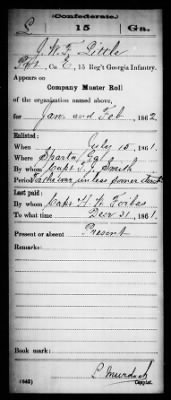 (Confederate.)
L 15 Ga.
J. W. F. Little
Pvt, Co. E, 15 Reg't Georgia Infantry.
Appears on
Company Muster Roll
of the organization named above,
for Jan and Feb, 1862
Enlisted:
When July 15, 1861.
Where Sparta, Ga.
By whom Capt. T. J. Smith
Period For the war, unless sooner disch
Last paid:
By whom Capt. H. H.
To what time Decr 31, 1861.
Present or absent Present
Remarks:
Book mark:
(642) L. Murdoch
Copyist.